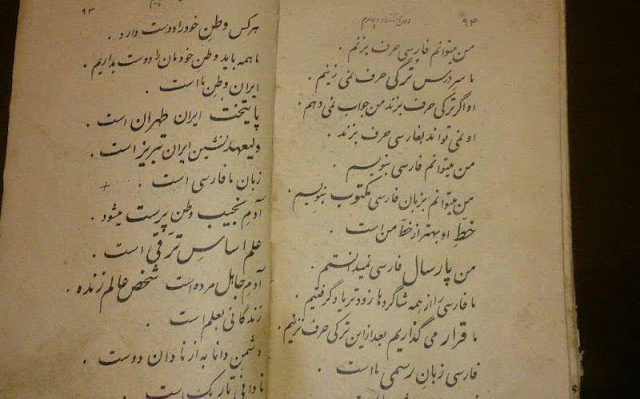 ۹۳
هرکس وطن خود را دوست دارد .
ما همه باید وطن خودمان را دوست بداریم .
ایران وطن ما است .
پایتخت ایران طهران است .
ولیعهد نشین ایران تبریز است .
زبان ما فارسی است .
آدم نجیب وطن پرست میشود .
علم اساس ترقی است .
آدم جاهل مرده است شخص عالم زنده .
زندگانی بعلم است .
دشمن دانا به از نادان دوست .
نادانی تاریک است
۹۴
من میتوانم فارسی حرف بزنم .
ما سر درس ترکی حرف نمی زنیم .
او اگر ترکی حرف بزند من جواب نمی دهم .
او نمی تواند بفارسی حرف بزند .
من میتوانم فارسی بنویسم .
من میتوانم بزبان فارسی مکتوب بنویسم .
خط او بهتر از خط من است .
من پارسال فارسی نمیدانستم .
ما فارسی را از همه شاگردها زودتر یاد گرفتیم .
ما قرار می گذاریم بعد از این ترکی حرف نزنیم .
فارسی زبان رسمی ما است .